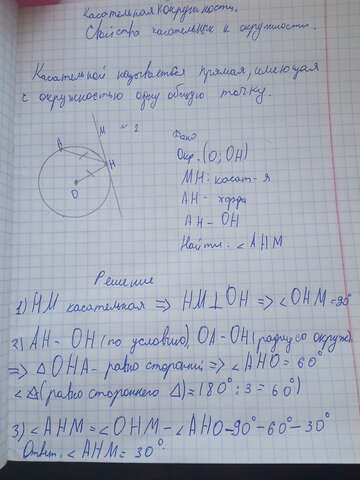 Касательная к окружности.
Свойства касательных к окружности.
Касательной называется прямая, имеющая
с окружностью одну общую точку.
M
A
H
O
Дано
Окр. (O; OH)
MH: касат-я
AH - хорда
AH - OH
Найти: < AHM
Решение
1) HM касательная ⇒ HM⊥OH ⇒ <OHM=90°
2) AH-OH (по условию) OA-OH (радиус окруж
⇒ △OHA - равно сторонний ⇒ <AHO=60°
<△ (равно стороннего △)=180°:3=60°)
3) <AHM=<OHM-<AHO-90°-60°-30°
Ответ. <AHM=30°.